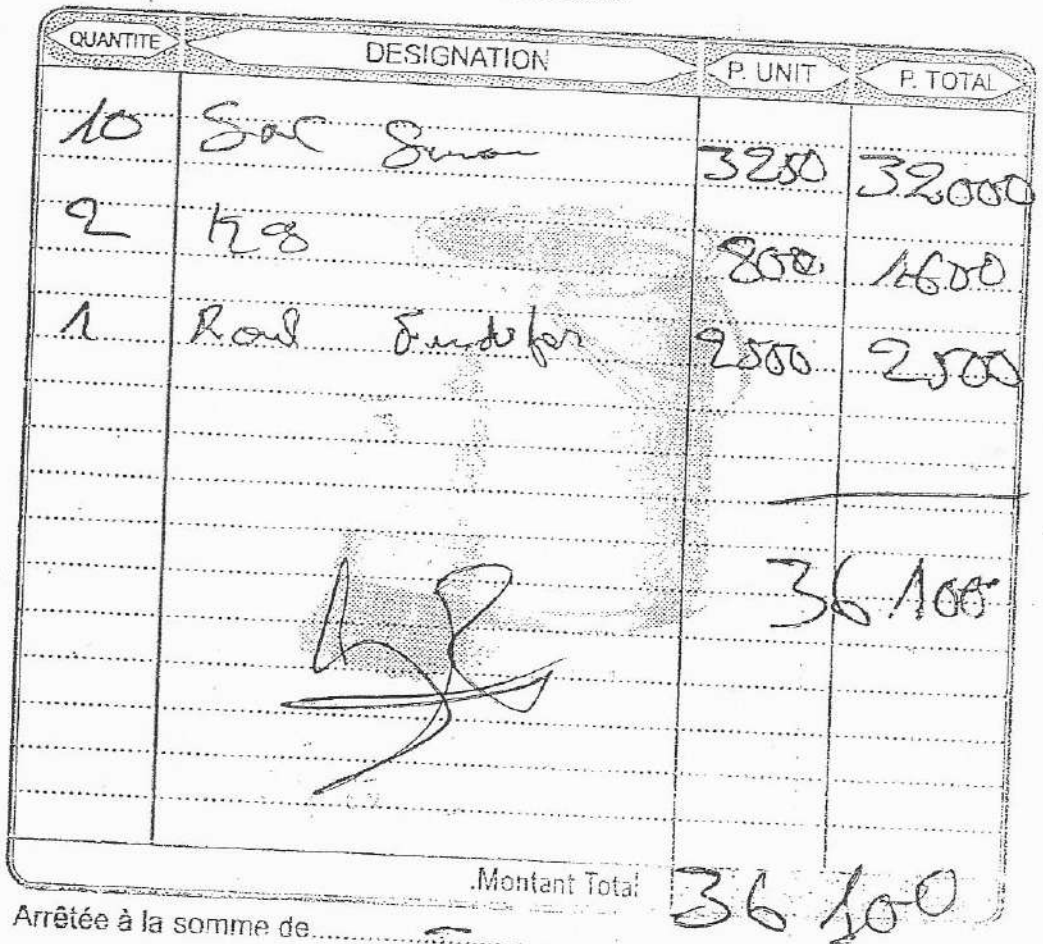 QUANTITE DESIGNATION P. UNIT P. TOTAL
10 Sac 3250 32000
2 Kg 800 1600
1 Roul 2500 2500
36 100
Montant Total 36 100
Arrêtée à la somme de